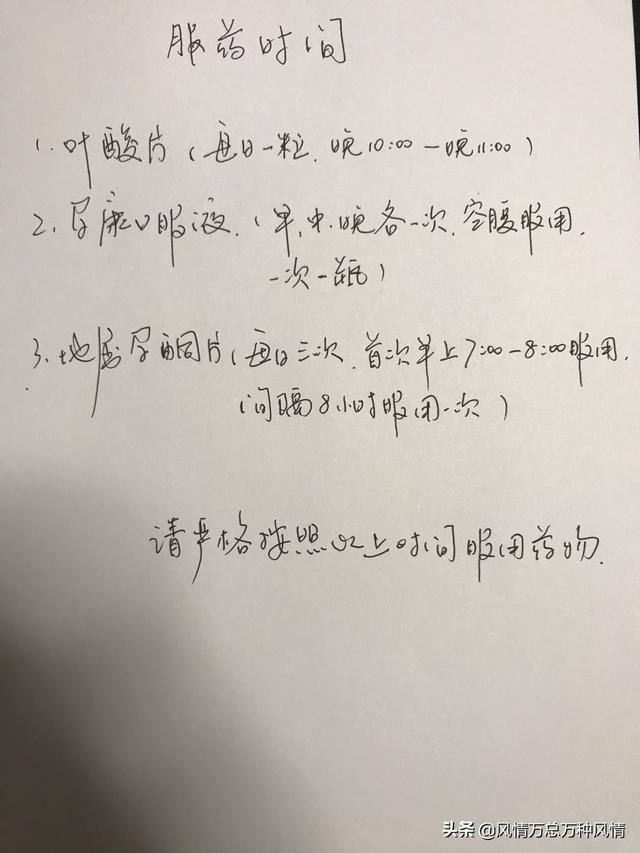 服药时间
1. 叶酸片(每日一粒, 晚10:00—晚11:00)
2. 孕康口服液. (早, 中, 晚各一次, 空腹服用,
一次一瓶)
3. 地屈孕酮片(每日三次, 首次早上7:00—8:00服用,
间隔8小时服用一次)
请严格按照以上时间服用药物.
头条 @风情万总万种风情